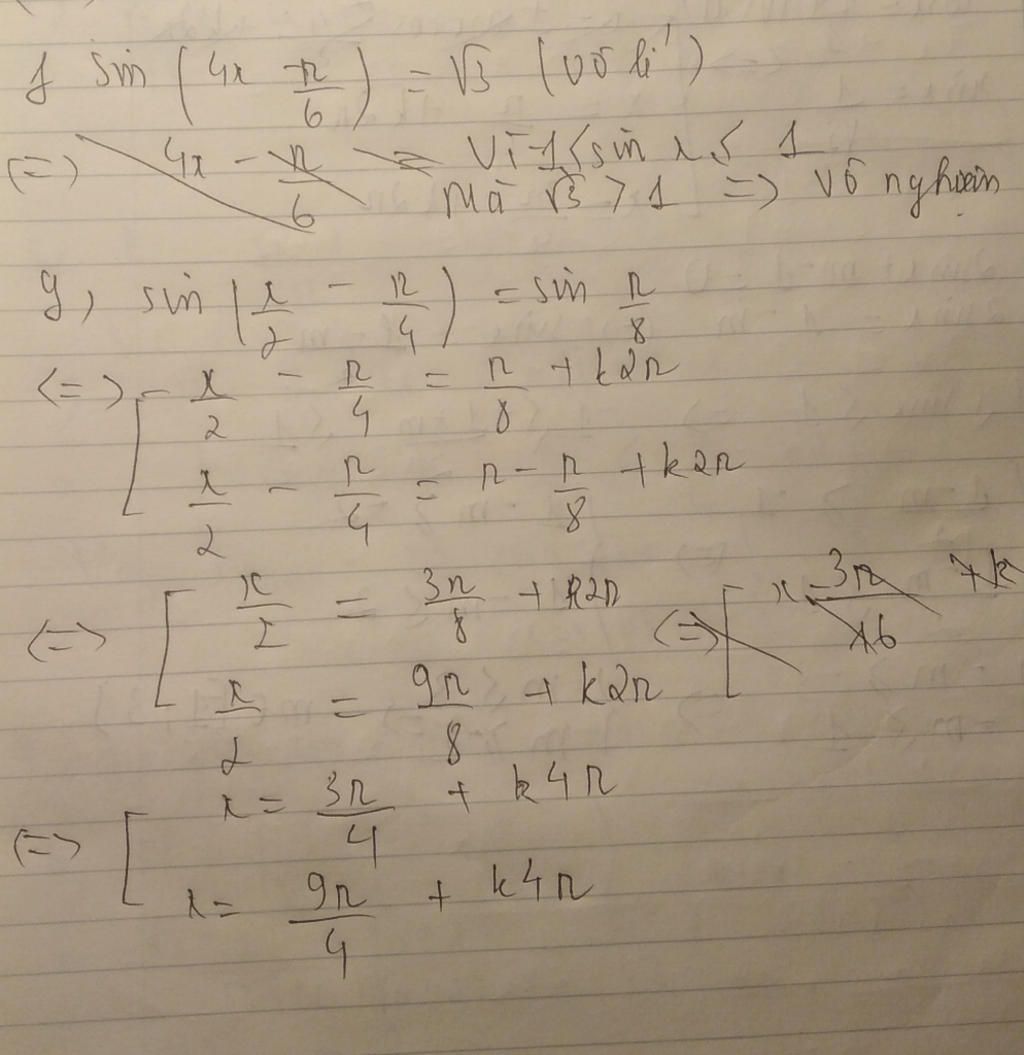 f sin (4x - π/6) = √3 (vô lí)
(=) 4x - π/6 = Vì -1 ≤ sin x ≤ 1
Mà √3 > 1 => vô nghiệm
g, sin (x/2 - π/4) = sin π/8
<=> [ x/2 - π/4 = π/8 + k2π
x/2 - π/4 = π - π/8 + k2π
<=> [ x/2 = 3π/8 + k2π (=> [ x 3π/16 + k
x/2 = 9π/8 + k2π
(=> [ x = 3π/4 + k4π
x = 9π/4 + k4π